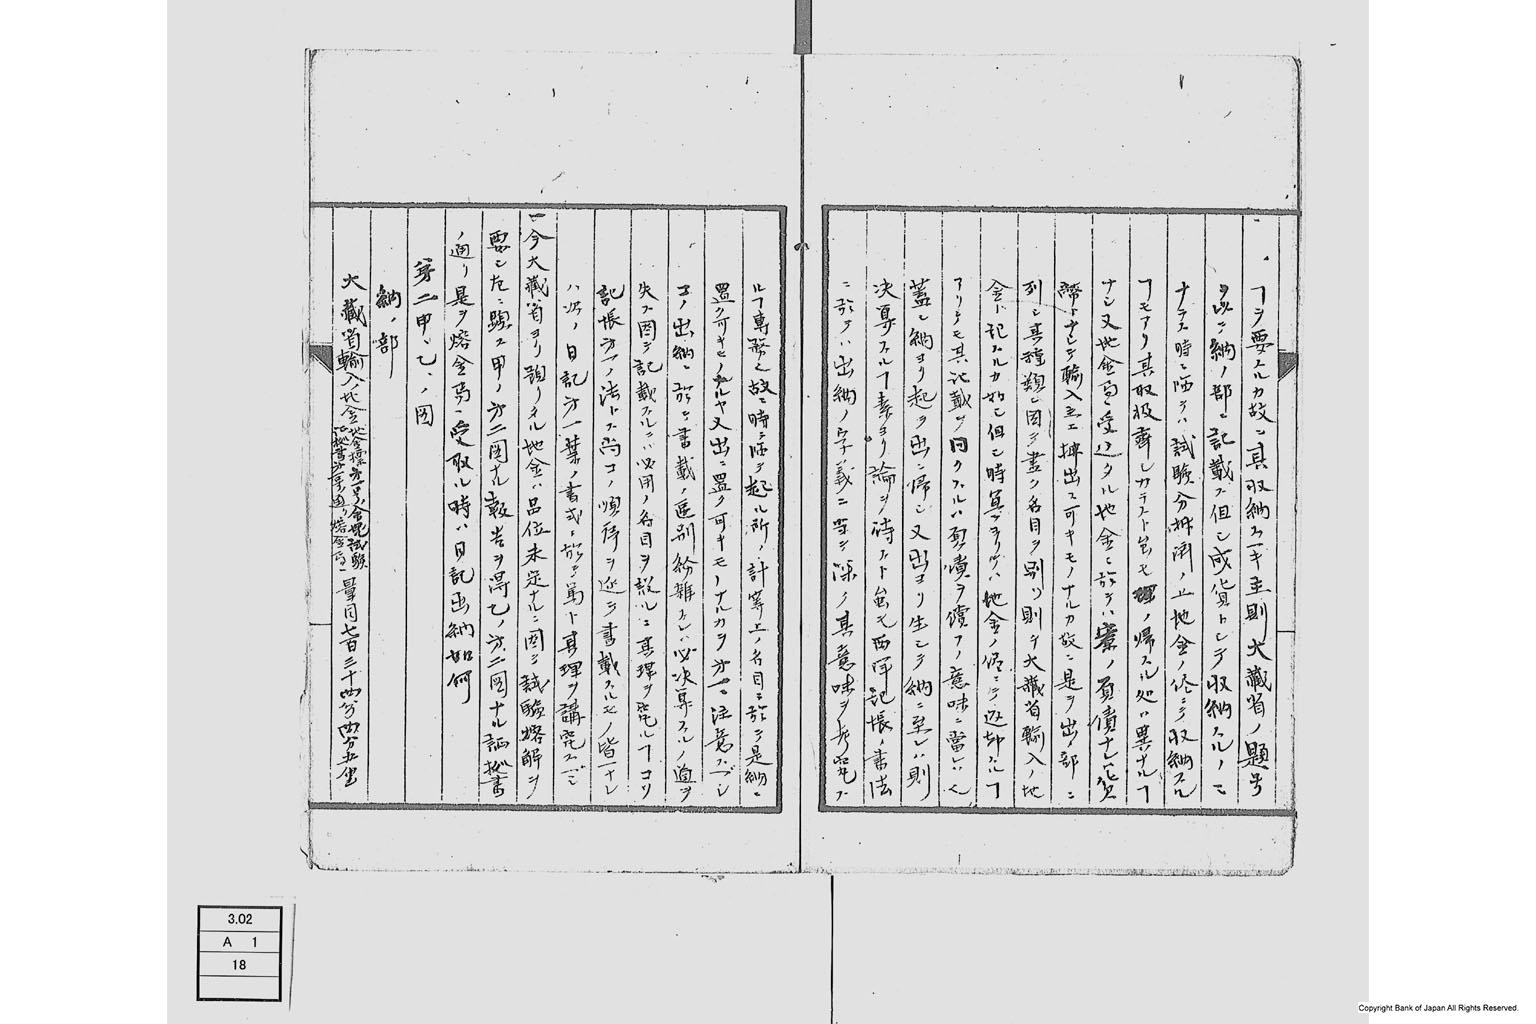 ヿヲ要スルカ故ニ其収納スヘキ主則大蔵省ノ題号
ヲ以テ納ノ部ニ記載ス但シ成貨トシテ収納スルノミ
ナラス時ニ随テハ試験分析済ノ上地金ノ侭ニテ収納スル
ヿモアリ其取扱齊シカラスト虽モ理ノ帰スル処ハ異ナルヿ
ナシ又地金局受込タル地金ニ於テハ寮ノ負債ナレハ
輸入主エ拂出ス可キモノナルカ故ニ是ヲ出ノ部ニ
列シ其種類ニ因テ書ク名目ヲ別リ則チ大蔵省輸入ノ地
金ト記スルカ如シ但シ時冝ヨリテハ地金ノ侭ニテ返却スルヿ
アリトモ其記載ヲ同クスルハ負債ヲ償フノ意味ニ當レハ也
蓋シ納ヨリ起ヲ出ニ帰シ又出ヨリ生シテ納ニ至レハ則
決算スルヿ素ヨリ論ヲ待タスト虽モ西洋記帳ノ書法
ニ於テハ出納ノ字義ニ至テ深ク其意味ヲ考究ス
ルヿ専務也故ニ時ニ随テ起ル所ノ計算上ノ名目ニ於テ是納ニ
置ク可キモノナルヤ又出ニ置ク可キモノナルカヲ注意スヘシ
コノ出納ニ於テ書載ノ區別紛雑スレハ必決算スルノ道ヲ
失フ因テ記載スルニハ必用ノ名目ヲ設ルニ其理ヲ究ルヿコソ
記帳方ノ法トス尚コノ順序ヲ逐テ書載スルモノ皆一ナレ
ハ次ノ日記方一葉ノ書式ニ於テ篤ト其理ヲ講究スヘシ
一今大蔵省ヨリ預リタル地金ハ品位未定ナルニ因テ試験熔解ヲ
要シ左ニ顕ス甲ノ方ニ図ナル報告ヲ得乙ノ方ニ図ナル証拠書
ノ通リ是ヲ熔金局ニ受取ル時ハ日記出納如何
第二甲乙ノ図
納ノ部
大蔵省輸入ノ地金 量目七百三十四分
3.02
A 1
18
Copyright Bank of Japan All Rights Reserved.